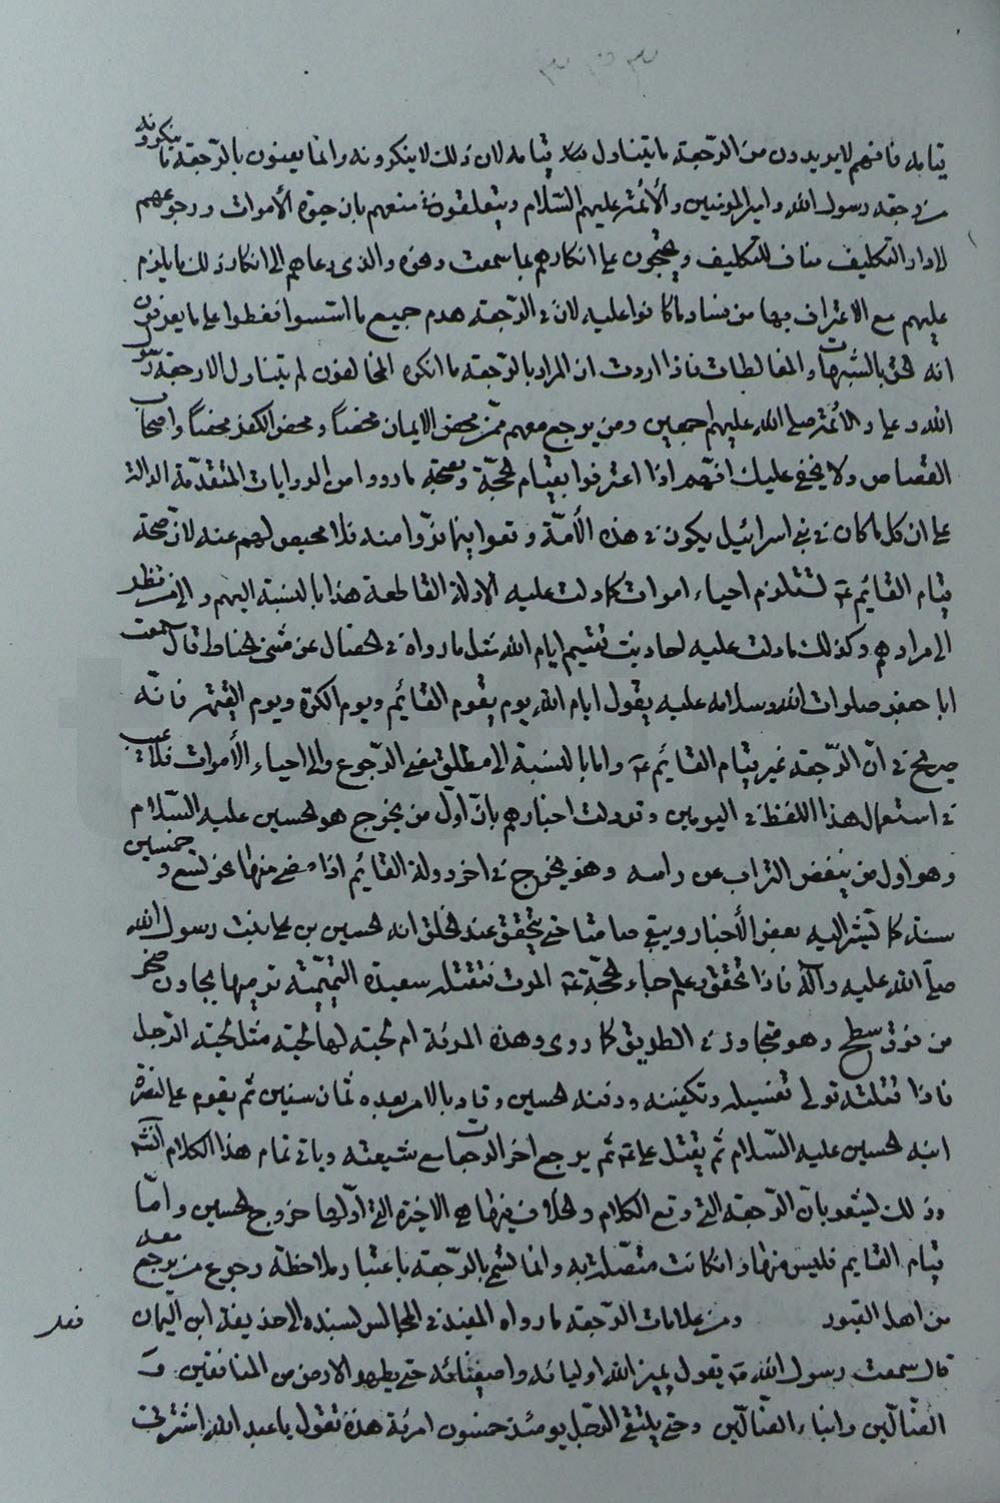 قيامه فانهم لا يريدون من الرجعة ما يتناول قيامه لان ذلك لا ينكرونه وانما يعنون بالرجعة ما ينكرونه
من رجعة رسول الله وامير المؤمنين والأئمة عليهم السّلام ويتعلقون في منعهم بان حيوة الأموات ورجوعهم
لدار التكليف مناف للتكليف ويحتجون على انكارهم بما سمعت ونحوه والذى دعاهم الى انكار ذلك ما يلزم
عليهم مع الاعتراف بها من فساد ما كانوا عليه لان في الرجعة هدم جميع ما اسسوا فغطوا على ما يعرفون
انه الحق بالشبهات والمغالطات فاذا اردت ان المراد بالرجعة ما انكره المخالفون لم يتناول الا رجعة رسول
الله وعلى والائمة صلى الله عليهم اجمعين ومن يرجع معهم ممن محض الايمان محضاً ومحض الكفر محضاً واصحاب
القصاص ولا يخفى عليك انهم اذا اعترفوا بقيام الحجّة وصحة ما رووا من الروايات المتقدّمة الدالة
على ان كل ما كان في بني اسرائيل يكون في هذه الأمّة وقعوا فيما فرّوا منه فلا محيص لهم عنه لان صحة
قيام القائم ع تستلزم احياء اموات كما دلت عليه الادلة القاطعة هذا بالنسبة اليهم والى من نظر
الى مرادهم وكذلك ما دلت عليه احاديث تقسيم ايام الله مثل ما رواه في الخصال عن مثنى الحناط قال سمعت
ابا جعفر صلوات الله وسلامه عليه يقول ايام الله يوم يقوم القائم ويوم الكرة ويوم القيمة فانّه
صريح في انّ الرّجعة غير قيام القائم ع واما بالنسبة الى مطلق معنى الرّجوع والى احياء الأموات فلا عيب
في استعمال هذا اللفظ في اليومين وقد دلت اخبارهم بانّ اول من يخرج هو الحسين عليه السّلام
وهو اول من ينفض التراب عن راسه وهو يخرج في اخر دولة القائم اذا مضى منها نحو تسع وخمسين
سنة كما تشير اليه بعض الأخبار ويبقى صامتا حتى يتحقق عند الخلق انه الحسين بن على بن بنت رسول الله
صلى الله عليه وآله فاذا تحقق وعلم جاء الحجّة ع الموت فتقتله سعيدة التميمية ترميها بجاون صخر
من فوق سطح وهو متجاوز في الطريق كما روى وهذه المرئة ام لحية لها لحية مثل لحية الرجل
فاذا قتلته تولى تغسيله وتكفينه ودفنه الحسين وقام بالامر بعده ثمان سنين ثم يقوم على لنصرة
ابنه الحسين عليه السّلام ثم يقتل على ع ثم يرجع اخر الرجعات مع شيعته وياتى تمام هذا الكلام انش
وذلك ليشعر بان الرّجعة التي وقع الكلام والخلاف فيها هي الاخيرة التي اوّلها خروج الحسين وامّا
قيام القايم فليس منها وان كانت متصلة به وانما تسمى بالرّجعة باعتبار ملاحظة رجوع من يرجع معه
من اهل القبور ومن علامات الرّجعة ما رواه المفيد في المجالس بسنده الى حذيفة ابن اليمان
قال سمعت رسول الله ص يقول يميز الله اوليائه واصفيائه حتى يطهر الارض من المنافقين و
الضالّين وابناء الضالّين وحتى يلتقى الرّجل يومئذ خمسون امرئة هذه تقول يا عبد الله اشترني